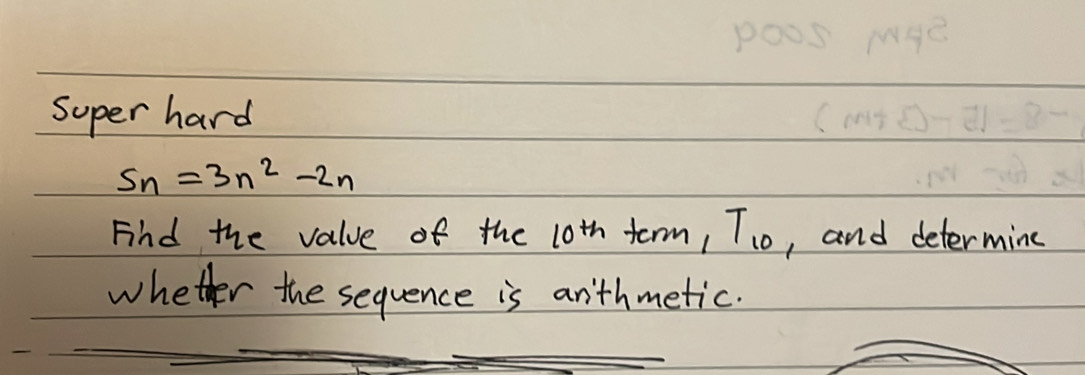 Super hard
Sn = 3n² - 2n
Find the value of the 10th term, T₁₀, and determine
whether the sequence is arithmetic.